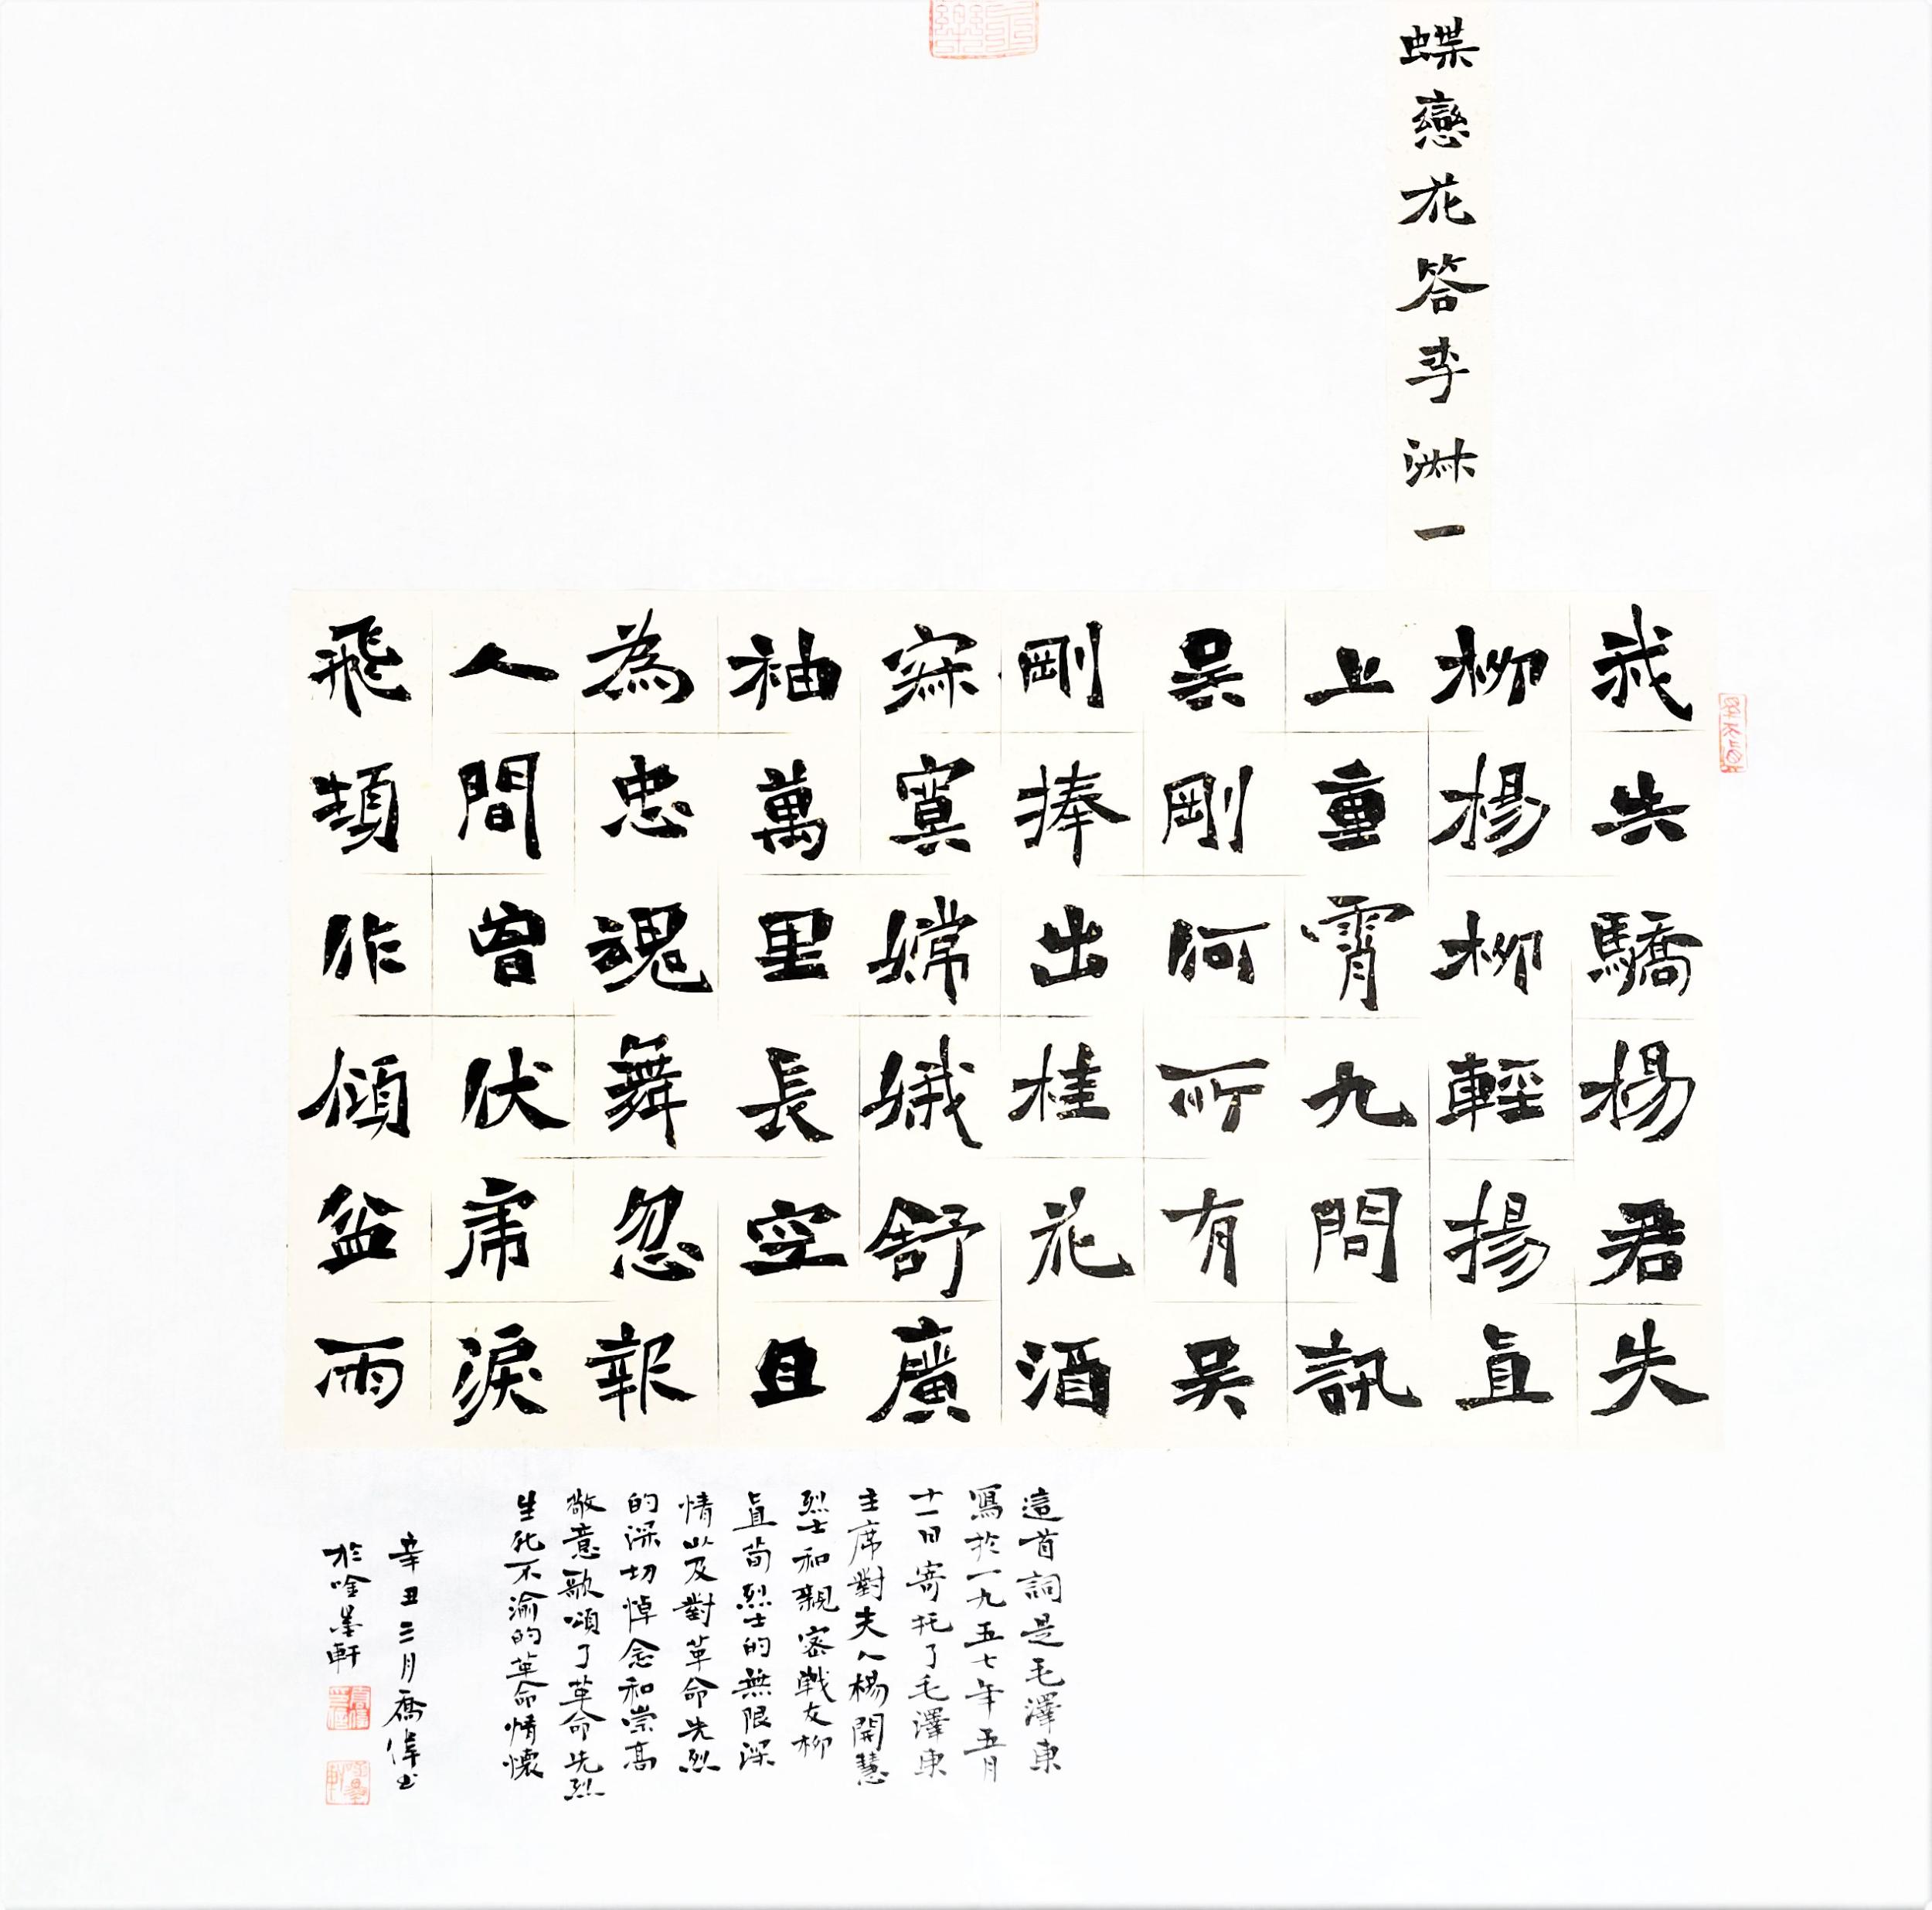 蝶戀花答李淑一
我失驕楊君失
柳楊柳輕揚直
上重霄九問訊
吴剛何所有吴
剛捧出桂花酒
寂寞嫦娥舒廣
袖萬里長空且
為忠魂舞忽報
人間曾伏虎淚
飛頓作傾盆雨
這首詞是毛澤東
寫於一九五七年五月
十一日寄托了毛澤東
主席對夫人楊開慧
烈士和親密戰友柳
直荀烈士的無限深
情以及對革命先烈
的深切悼念和崇高
敬意歌頌了革命先烈
生死不渝的革命情懷
辛丑三月喬偉书
於唫墨軒